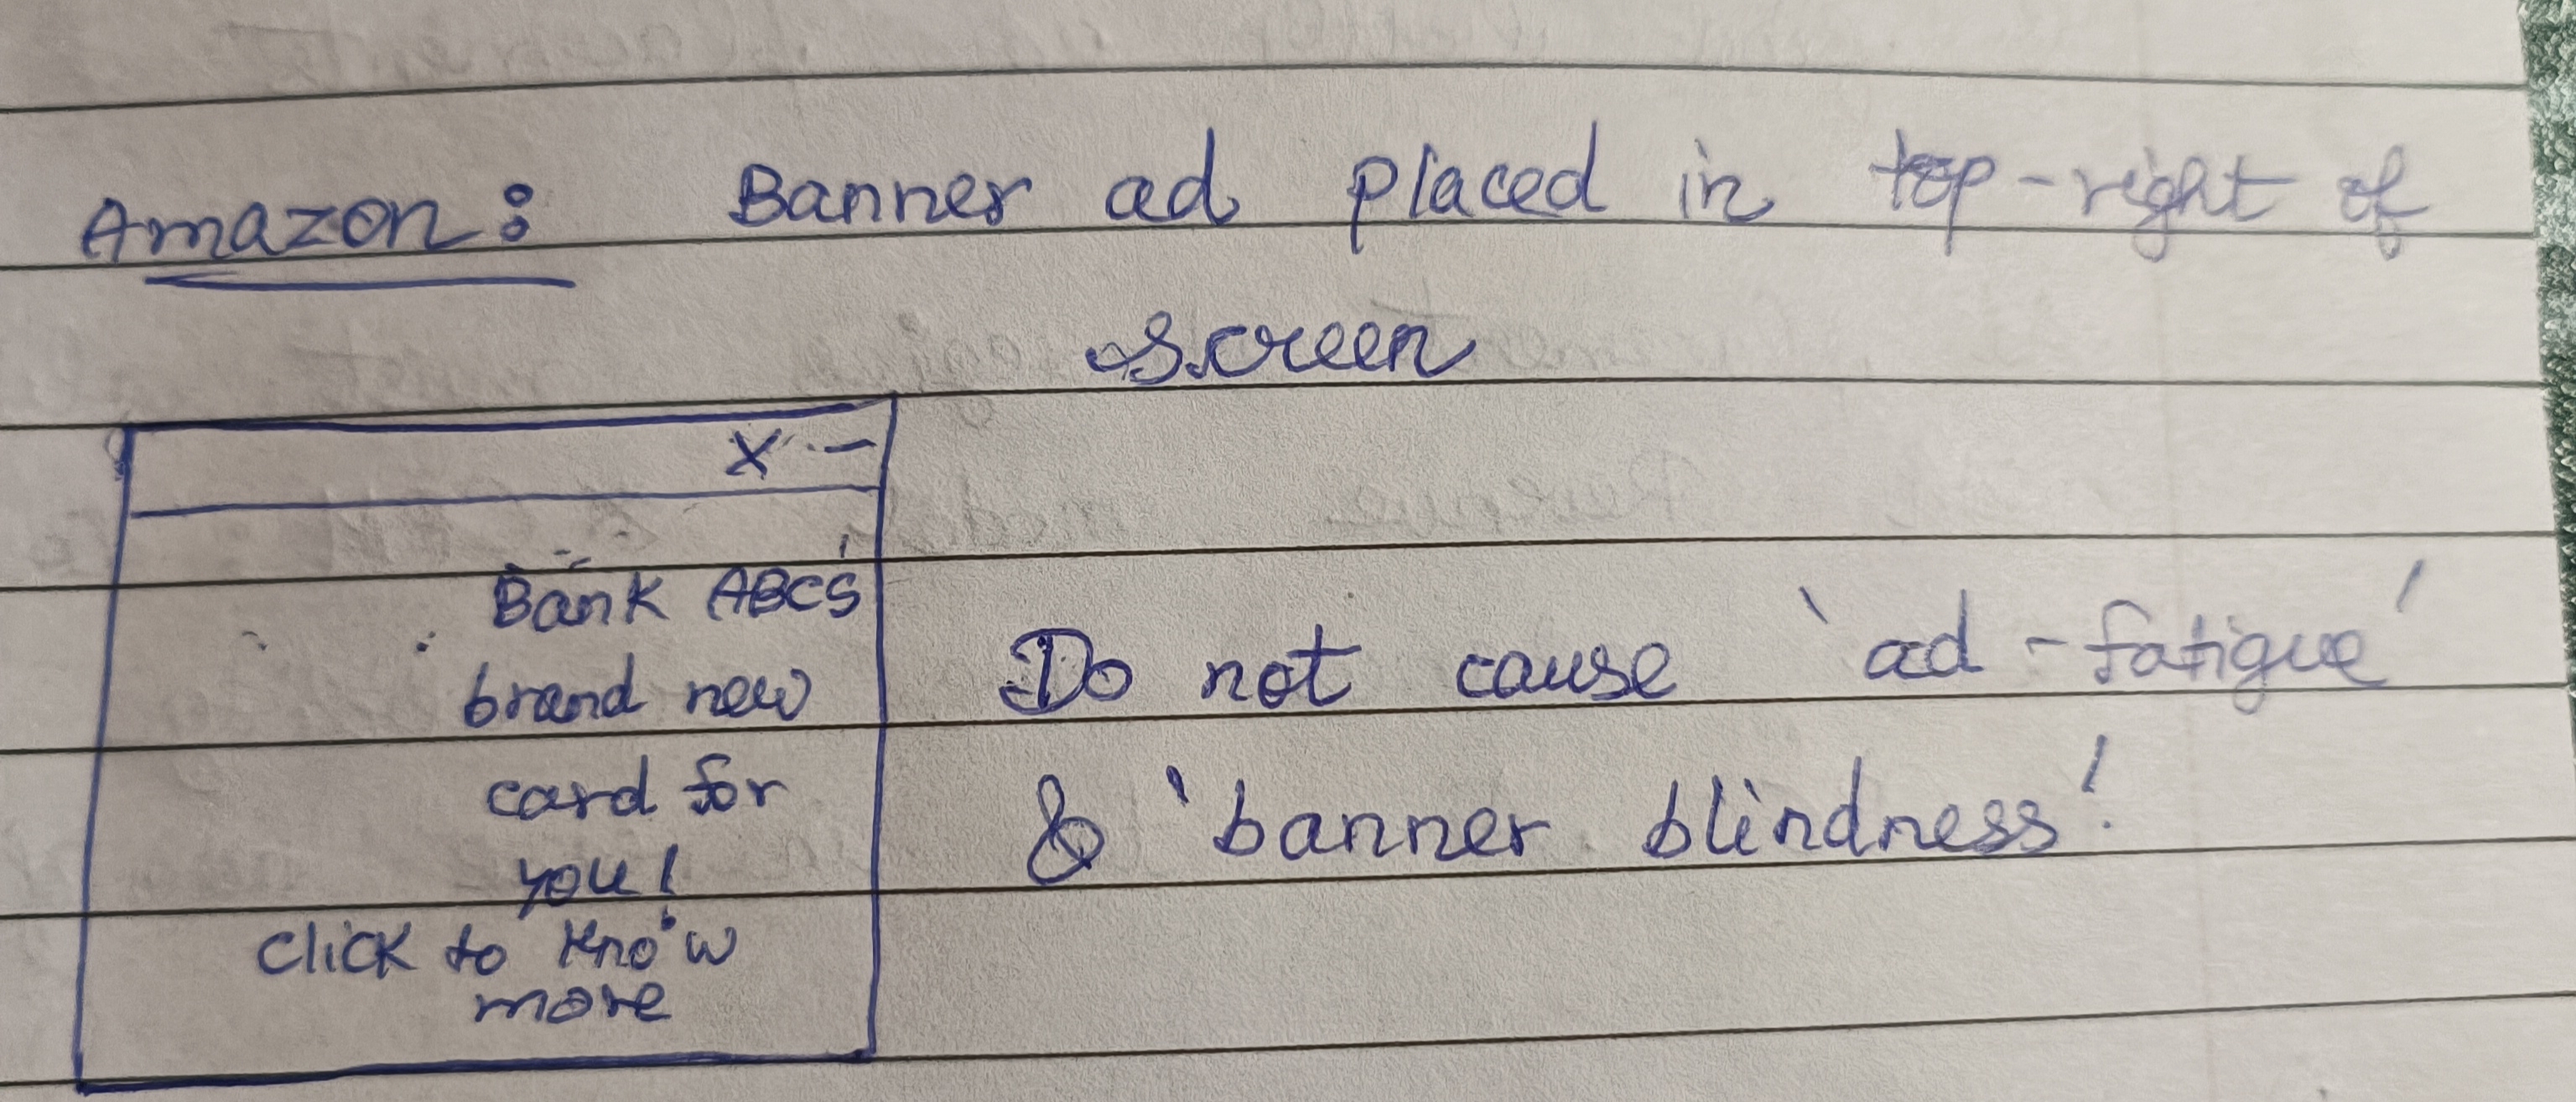 Amazon: Banner ad placed in top-right of
screen
X –
Bank ABC's
brand new
card for
you!
Click to know
more
Do not cause 'ad-fatigue'
& 'banner blindness'.